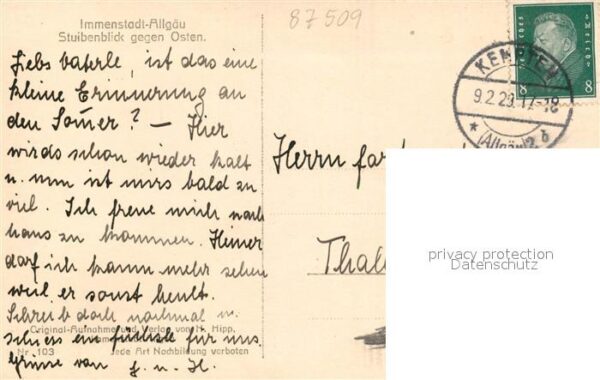 Immenstadt-Allgäu
Stuibenblick gegen Osten.
87509
Liebs baterle, ist das eine
kleine Erinnerung an
den Somer? — Hier
wirds schon wieder kalt
u. nun ist mirs bald zu
viel. Ich freue mich nach
haus zu kommen. Heiner
darf ich kaum mehr sehen
weil er sonst heult.
Schreib doch nochmal u.
Original-Aufnahme und Verlag von H. Hipp,
schiess ein füchsle für uns
Nr. 103 Jede Art Nachbildung verboten
Grüsse von f. u. H.
DEUTSCHES REICH
8 8
KEMPTEN
9.2.29.17-18
* (Allgäu) 2 b
Herrn
Thal
privacy protection
Datenschutz